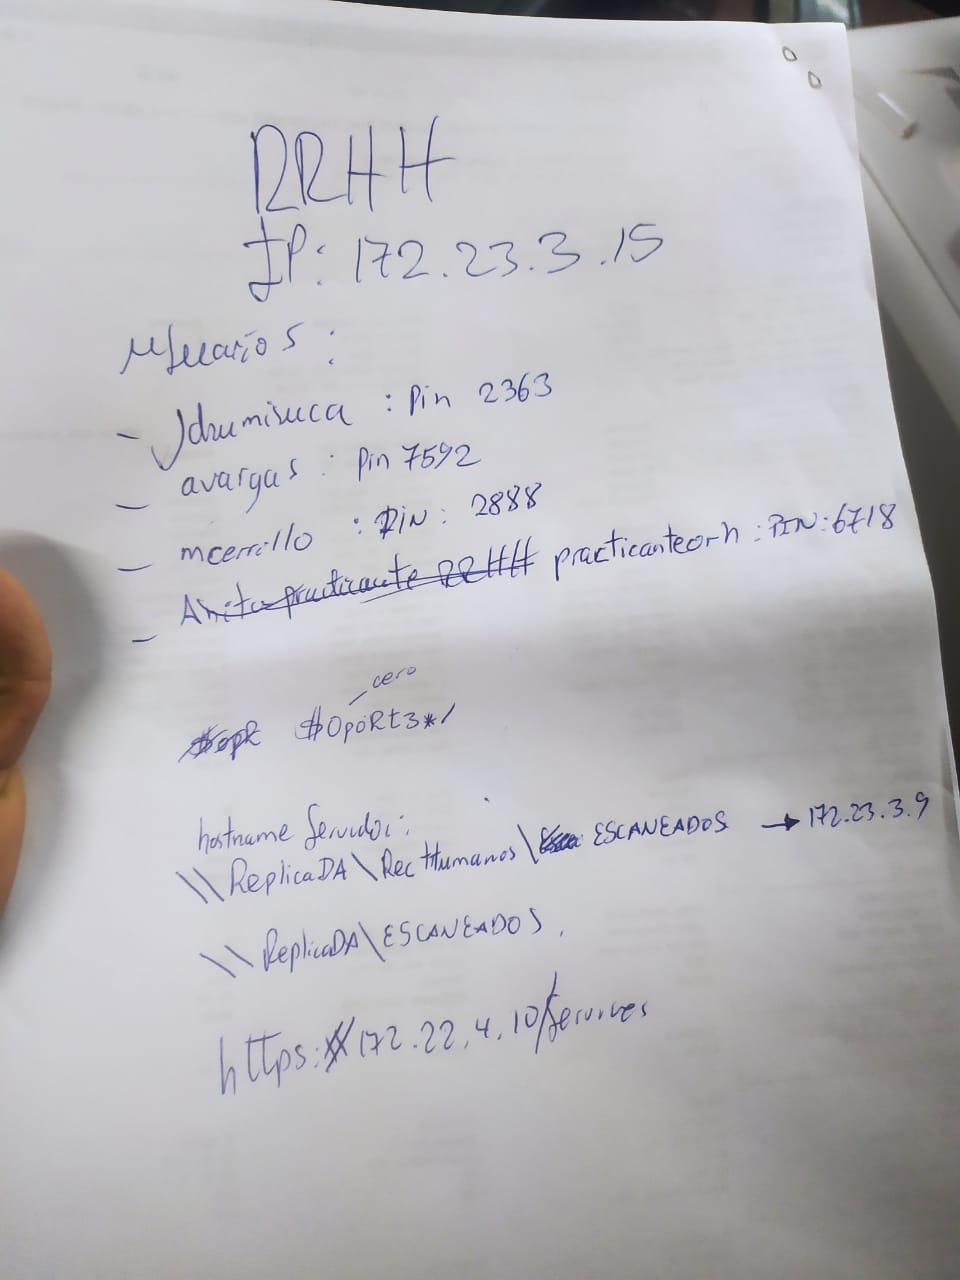 RRHH
IP: 172.23.3.15
Usuarios:
- Jchumisuca : Pin 2363
- avargas : Pin 7592
- mcerrillo : PIN : 2888
- Anita practicante RRHH practicanterrh : PIN : 6718
cero
$OpoRt3*/
hostname Servidor:
\\ReplicaDA\RecHumanos\ESCANEADOS → 172.23.3.9
\\ReplicaDA\ESCANEADOS.
https://172.22.4.10/